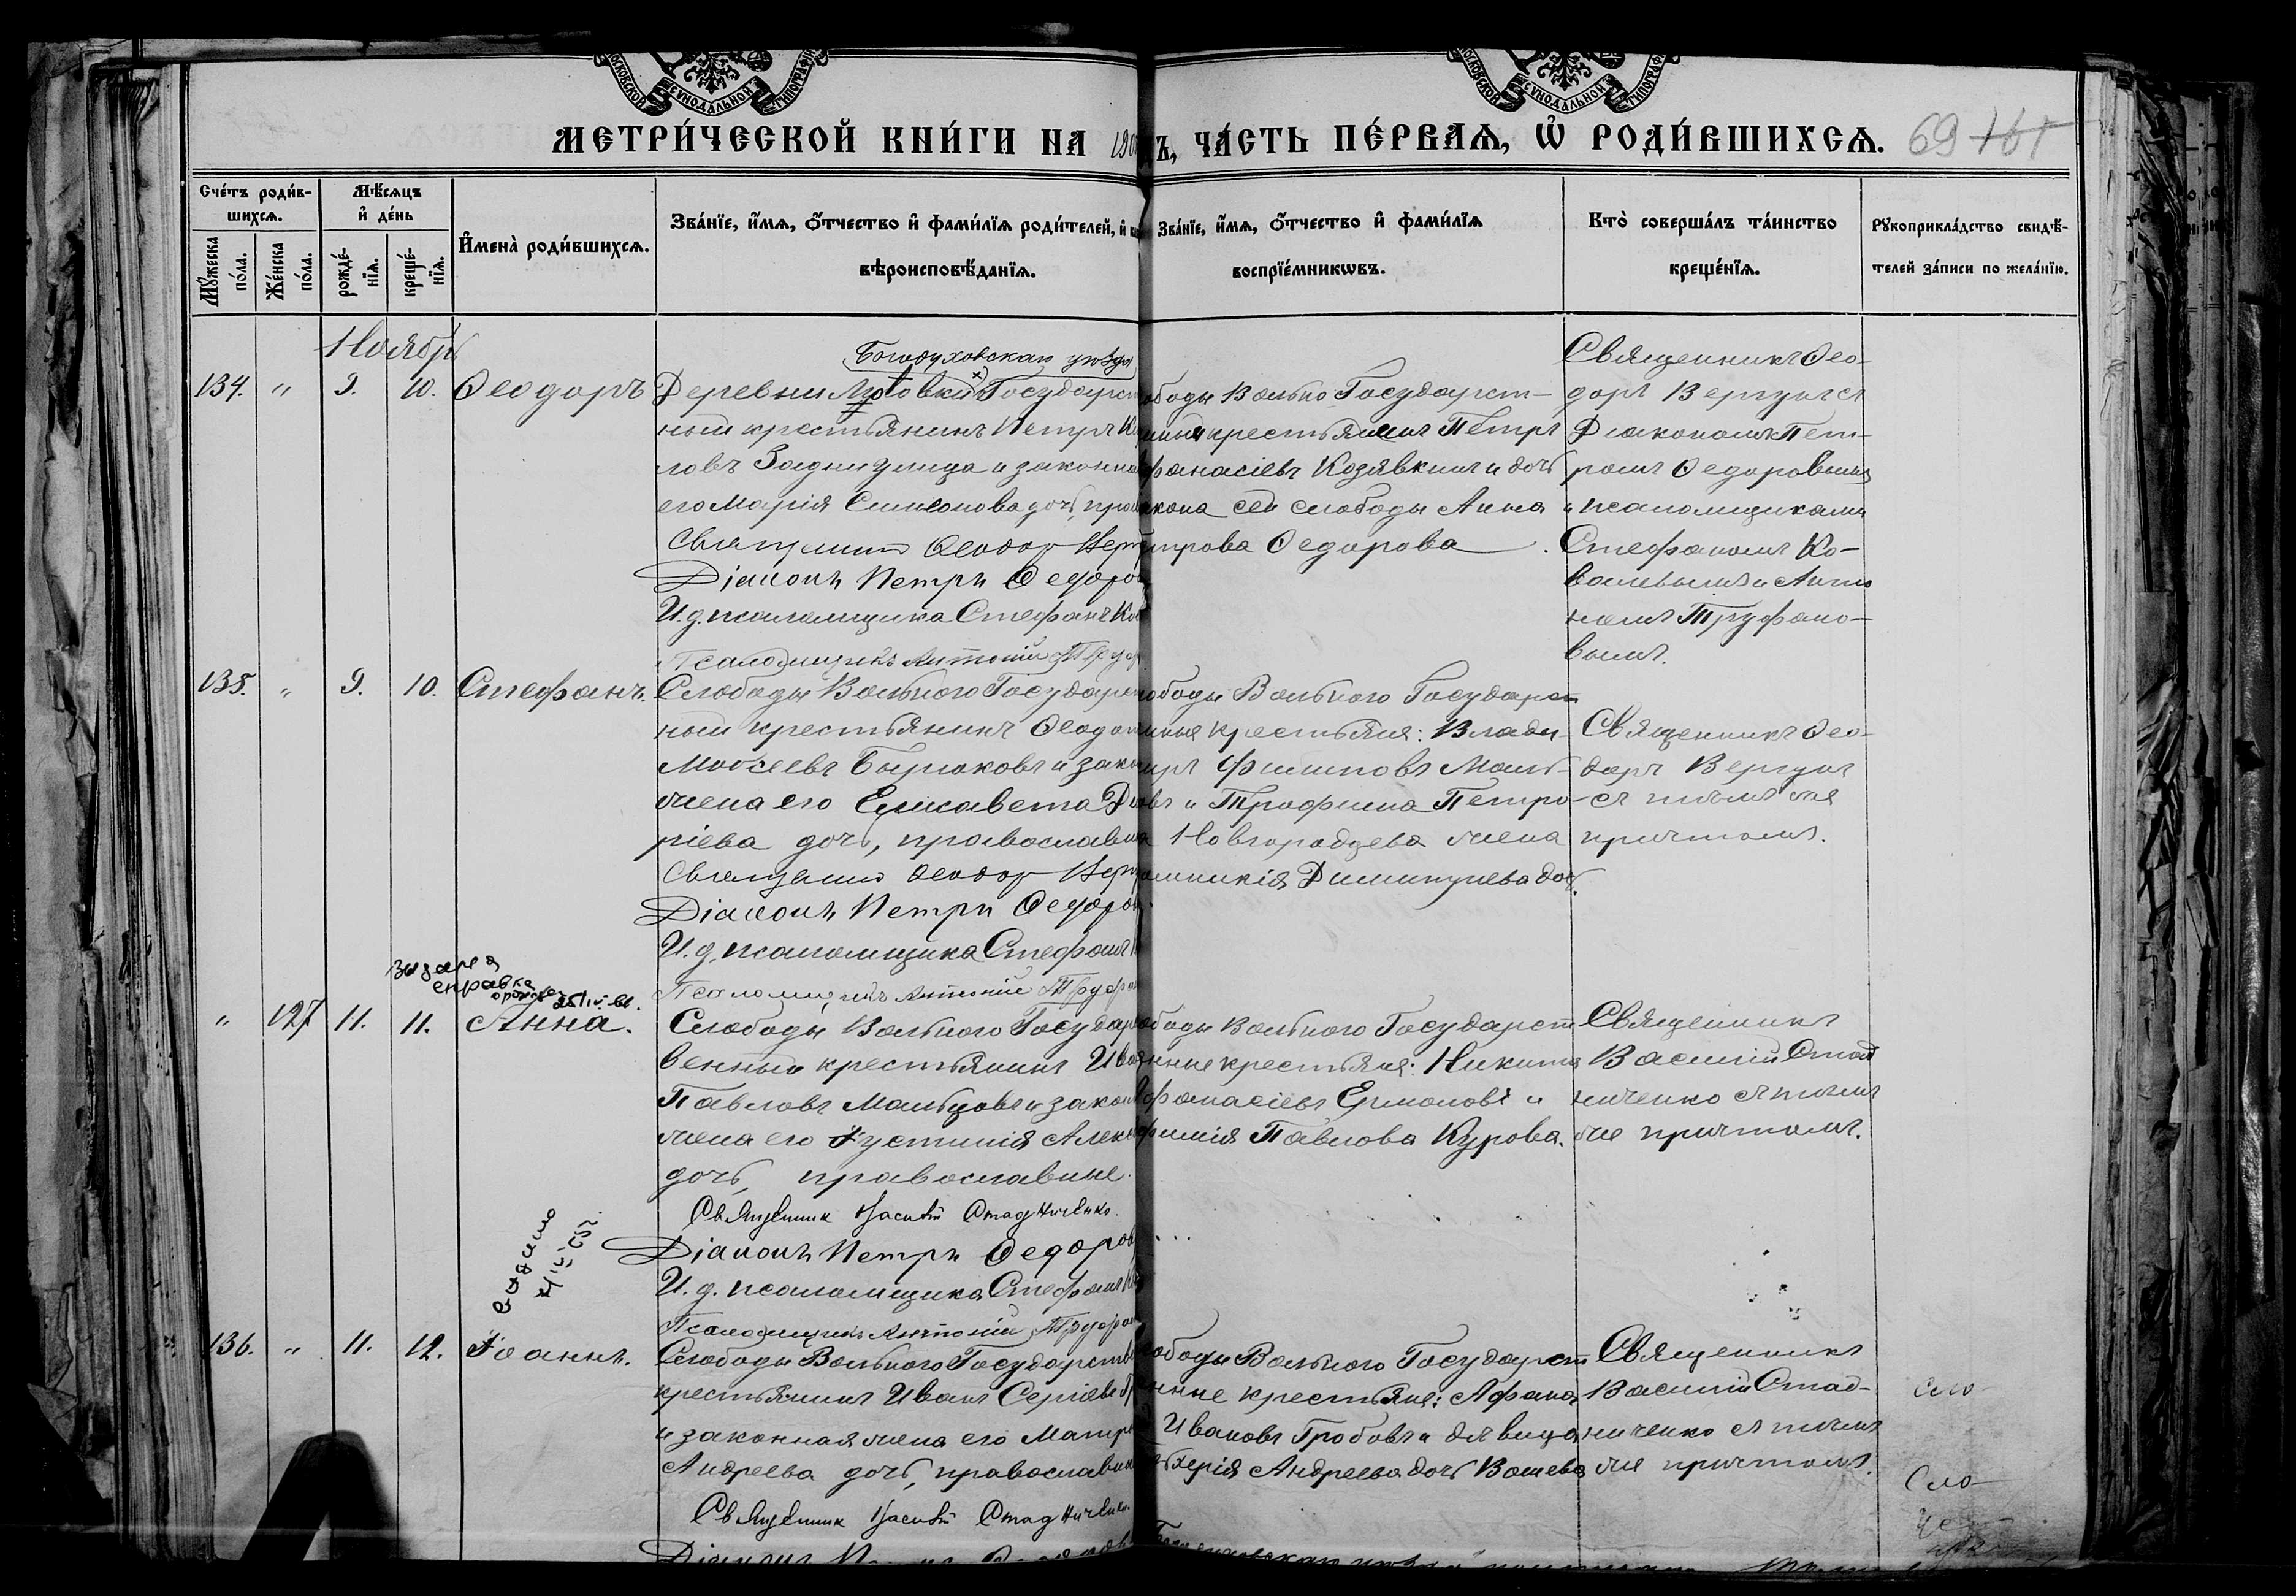 МЕТРИ́ЧЕСКОЙ КНИ́ГИ НА 190 Ъ, ЧА́СТЬ ПЕ́РВАЯ, Ѡ РОДИ́ВШИХСЯ. 69
Сче́тъ роди́в-
шихся.
Мѣ́сяцъ
и де́нь
Му́жеска
по́ла.
Же́нска
по́ла.
рожде́-
нія.
креще́-
нія.
Имена̀ роди́вшихся.
Зва́ніе, и́мя, о́тчество и фами́лія роди́телей, и
вѣроисповѣ́данія.
Зва́ніе, и́мя, о́тчество и фами́лія
воспріе́мниковъ.
Кто̀ соверша́лъ та́инство
креще́нія.
Рукоприкла́дство свидѣ́-
телей за́писи по жела́нію.
Ноябрь
134. " 9. 10. Ѳеодоръ
Богодуховскаго уѣзда
Деревни Лютовки Государст
ный крестьянинъ Петръ
ловъ Заднеулица и законная
его Марія Симеонова дочь, прав
Священникъ Ѳеодоръ Верг
Діаконъ Петръ Ѳедоров
И. д. псаломщика Стефанъ Ков
Псаломщикъ Антоній Труф
ободы Вольно Государст-
ный крестьянинъ Петръ
фанасіевъ Козявкинъ и дочь
акона сей слободы Анна
трова Ѳедорова
Священникъ Ѳео-
доръ Вергунъ съ
Діакономъ Пет-
ромъ Ѳедоровымъ
и псаломщиками
Стефаномъ Ко-
валевымъ и Анто
ніемъ Труфано-
вымъ.
135. " 9. 10. Стефанъ.
Слободы Вольного Государст
ный крестьянинъ Ѳеодот
Моѵсеевъ Бирюковъ и зако
жена его Елисавета Ди
ріева дочь, православн
Священникъ Ѳеодоръ Верг
Діаконъ Петръ Ѳедоров
И. д. псаломщика Стефанъ
Псаломщикъ Антоній Труфан
ободы Вольного Государст
нные крестьяне: Влади-
иръ Филиповъ Маль-
овъ и Трофима Петро-
а Новгородцева жена
омникія Димитріева дочь.
Священникъ Ѳео-
доръ Вергунъ
съ тѣмъ же
причтомъ.
Выдана
справка
" 127 11. 11. Анна.
Слободы Вольного Государ
венный крестьянинъ Ива
Павловъ Мальцовъ и закон
жена его Іустинія Алекс
дочь, православные.
Священник Василій Стадниченко.
Діаконъ Петръ Ѳедоров
И. д. псаломщика Стефанъ Ко
Псаломщикъ Антоній Труфан
ободы Вольного Государст
енные крестьяне: Никита
Афанасіевъ Ермоловъ и
фимія Павлова Курова.
Священникъ
Василій Стад
ниченко съ тѣмъ
же причтомъ.
136. " 11. 12. Іоаннъ.
Слободы Вольного Государств
крестьянинъ Иванъ Сергіевъ Гр
и законная жена его Матре
Андреева дочь, православн
Священник Василій Стадниченко.
ободы Вольного Государст
енные крестьяне: Афана
Ивановъ Гробовъ и дѣвица
Андреева дочь Вошева
Священникъ
Василій Стад-
ниченко съ тѣмъ
же причтомъ.
Сло-
Сло-